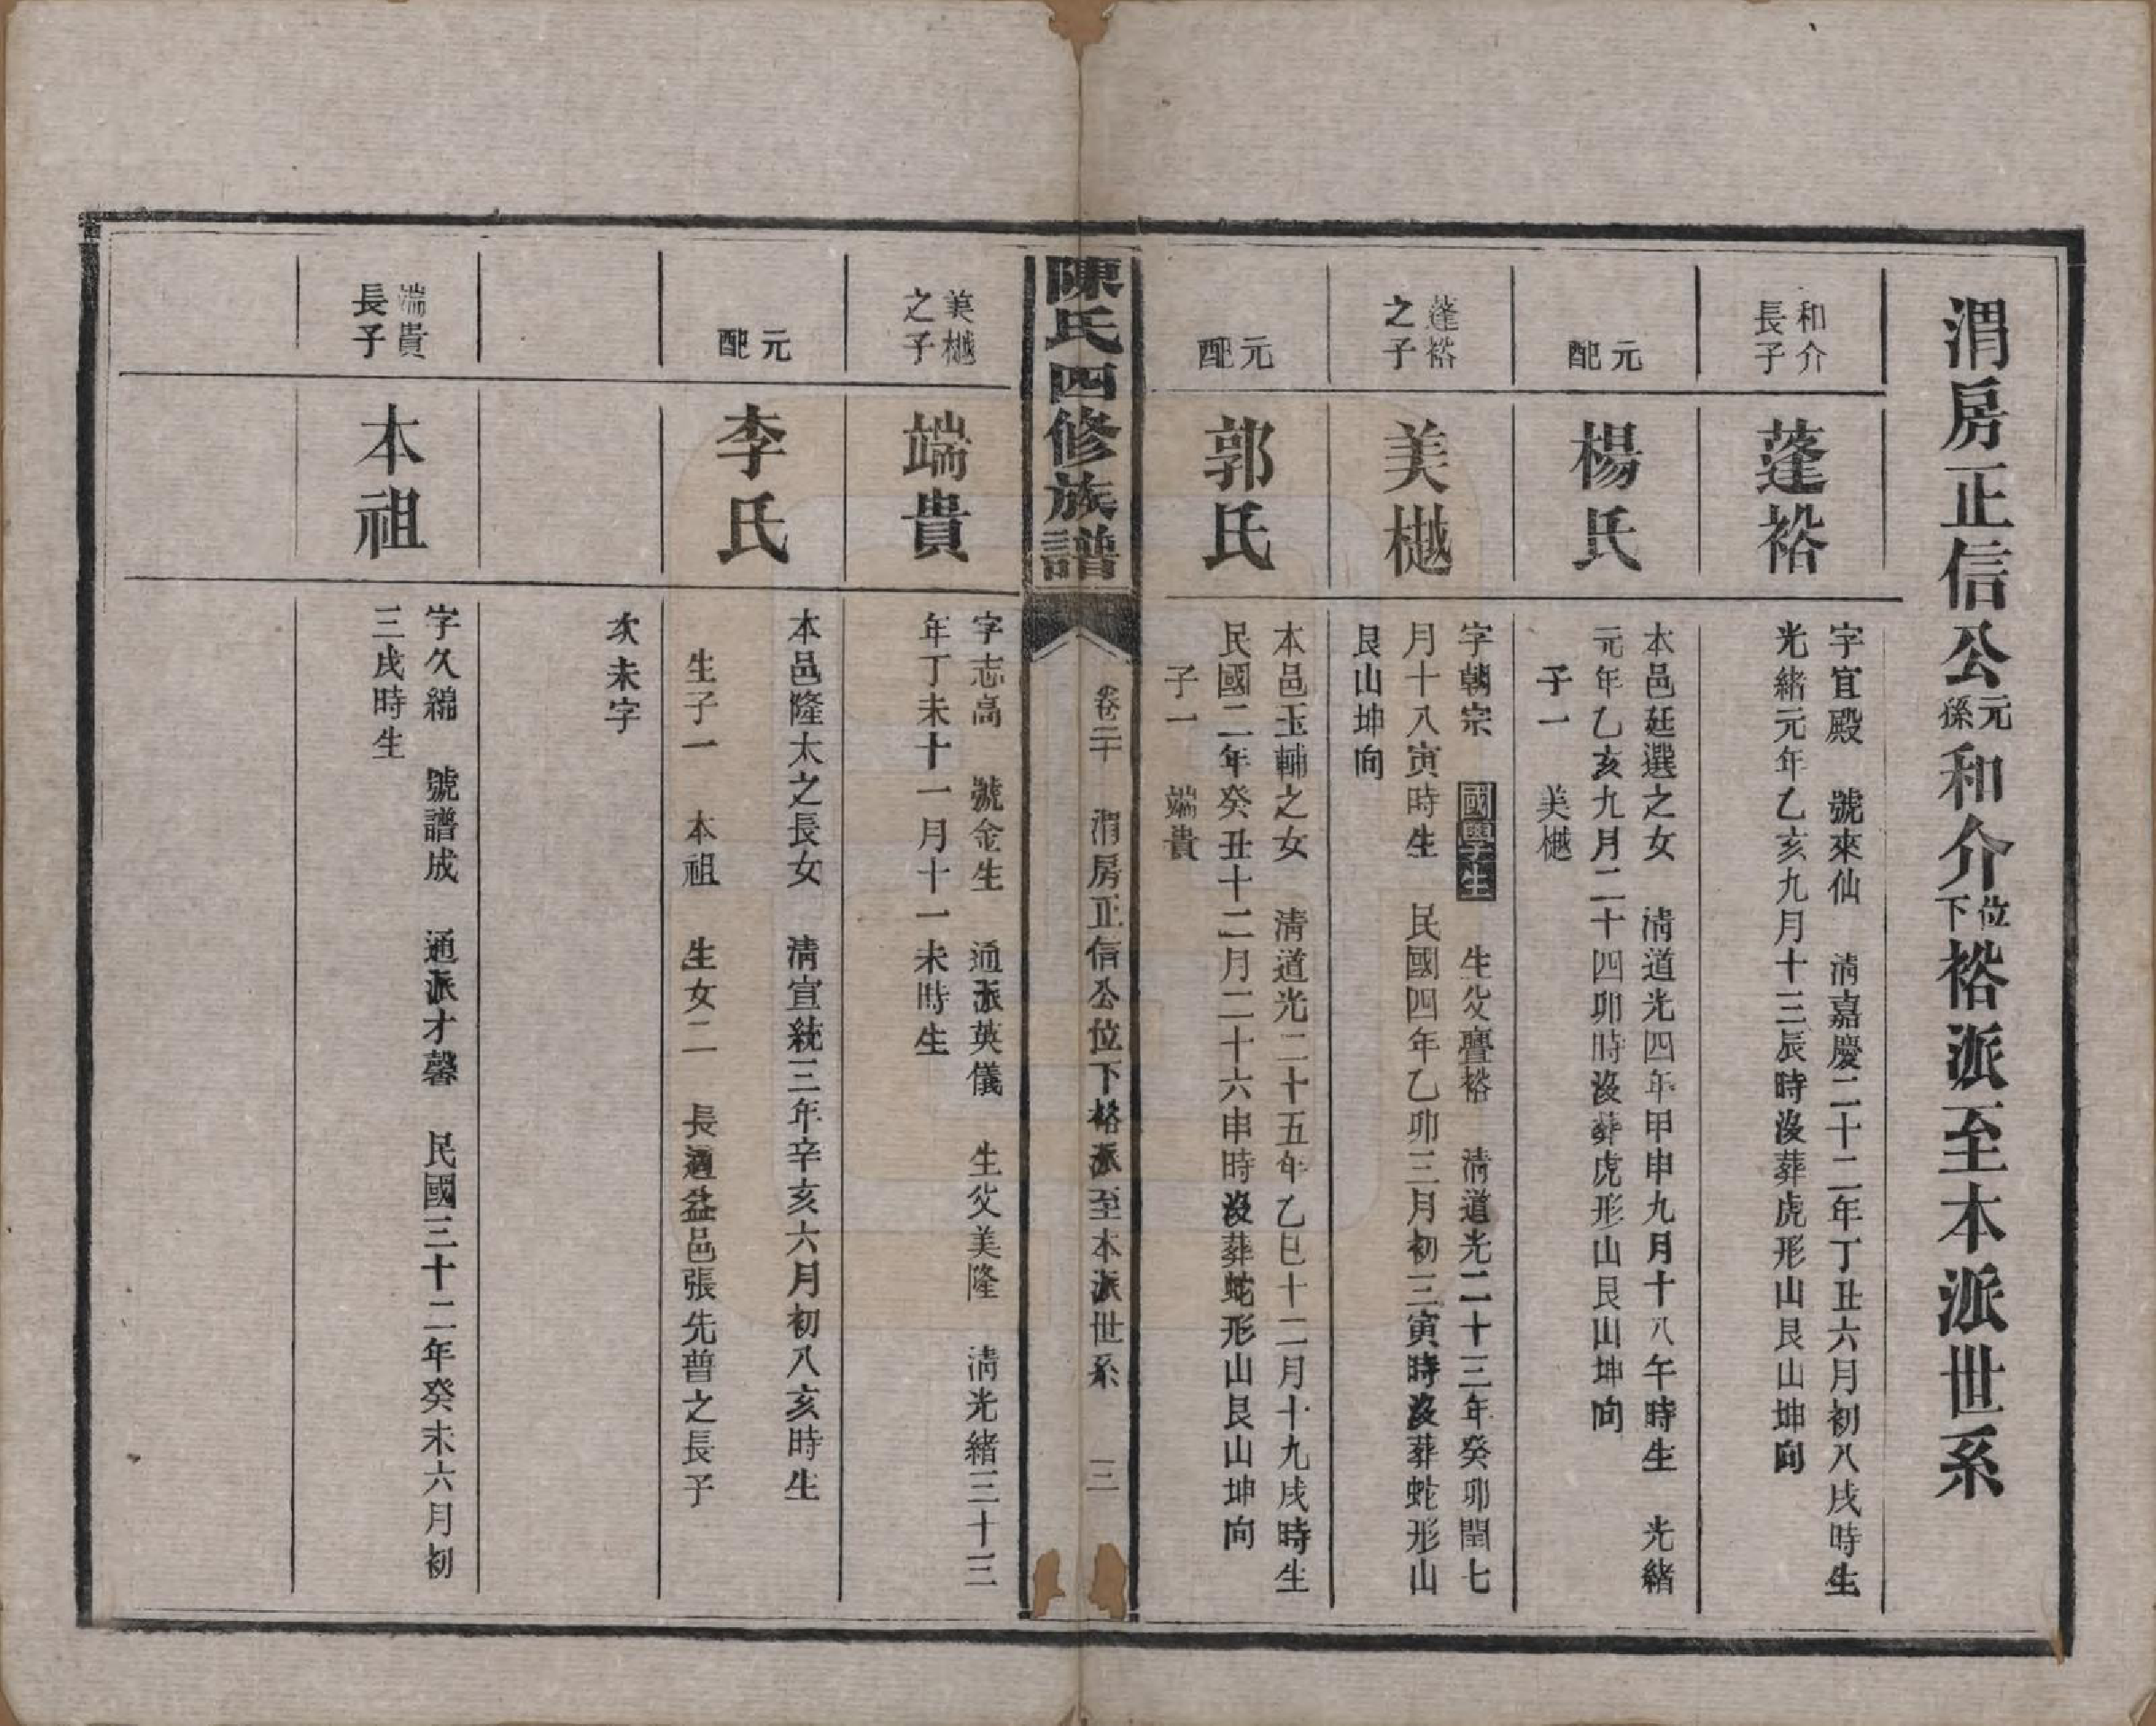 渭房正信公元孫和介位下裕派至本派世系
和介
長子
蓬裕
字宜殿　號來仙　清嘉慶二十二年丁丑六月初八戌時生
光緒元年乙亥九月十三辰時沒葬虎形山艮山坤向
元配
楊氏
本邑廷選之女　清道光四年甲申九月十八午時生　光緒
元年乙亥九月二十四卯時沒葬虎形山艮山坤向
子一　美樾
蓬裕
之子
美樾
字朝宗　國學生　生父亹裕　清道光二十三年癸卯閏七
月十八寅時生　民國四年乙卯三月初三寅時沒葬蛇形山
艮山坤向
元配
郭氏
本邑玉輔之女　清道光二十五年乙巳十二月十九戌時生
民國二年癸丑十二月二十六申時沒葬蛇形山艮山坤向
子一　端貴
陳氏四修族譜
卷二十　渭房正信公位下裕派至本派世系　三
美樾
之子
端貴
字志高　號金生　通派英儀　生父美隆　清光緒三十三
年丁未十一月十一未時生
元配
李氏
本邑隆太之長女　清宣統三年辛亥六月初八亥時生
生子一　本祖　生女二　長適益邑張先曹之長子
次未字
端貴
長子
本祖
字久綿　號譜成　通派才馨　民國三十二年癸未六月初
三戌時生